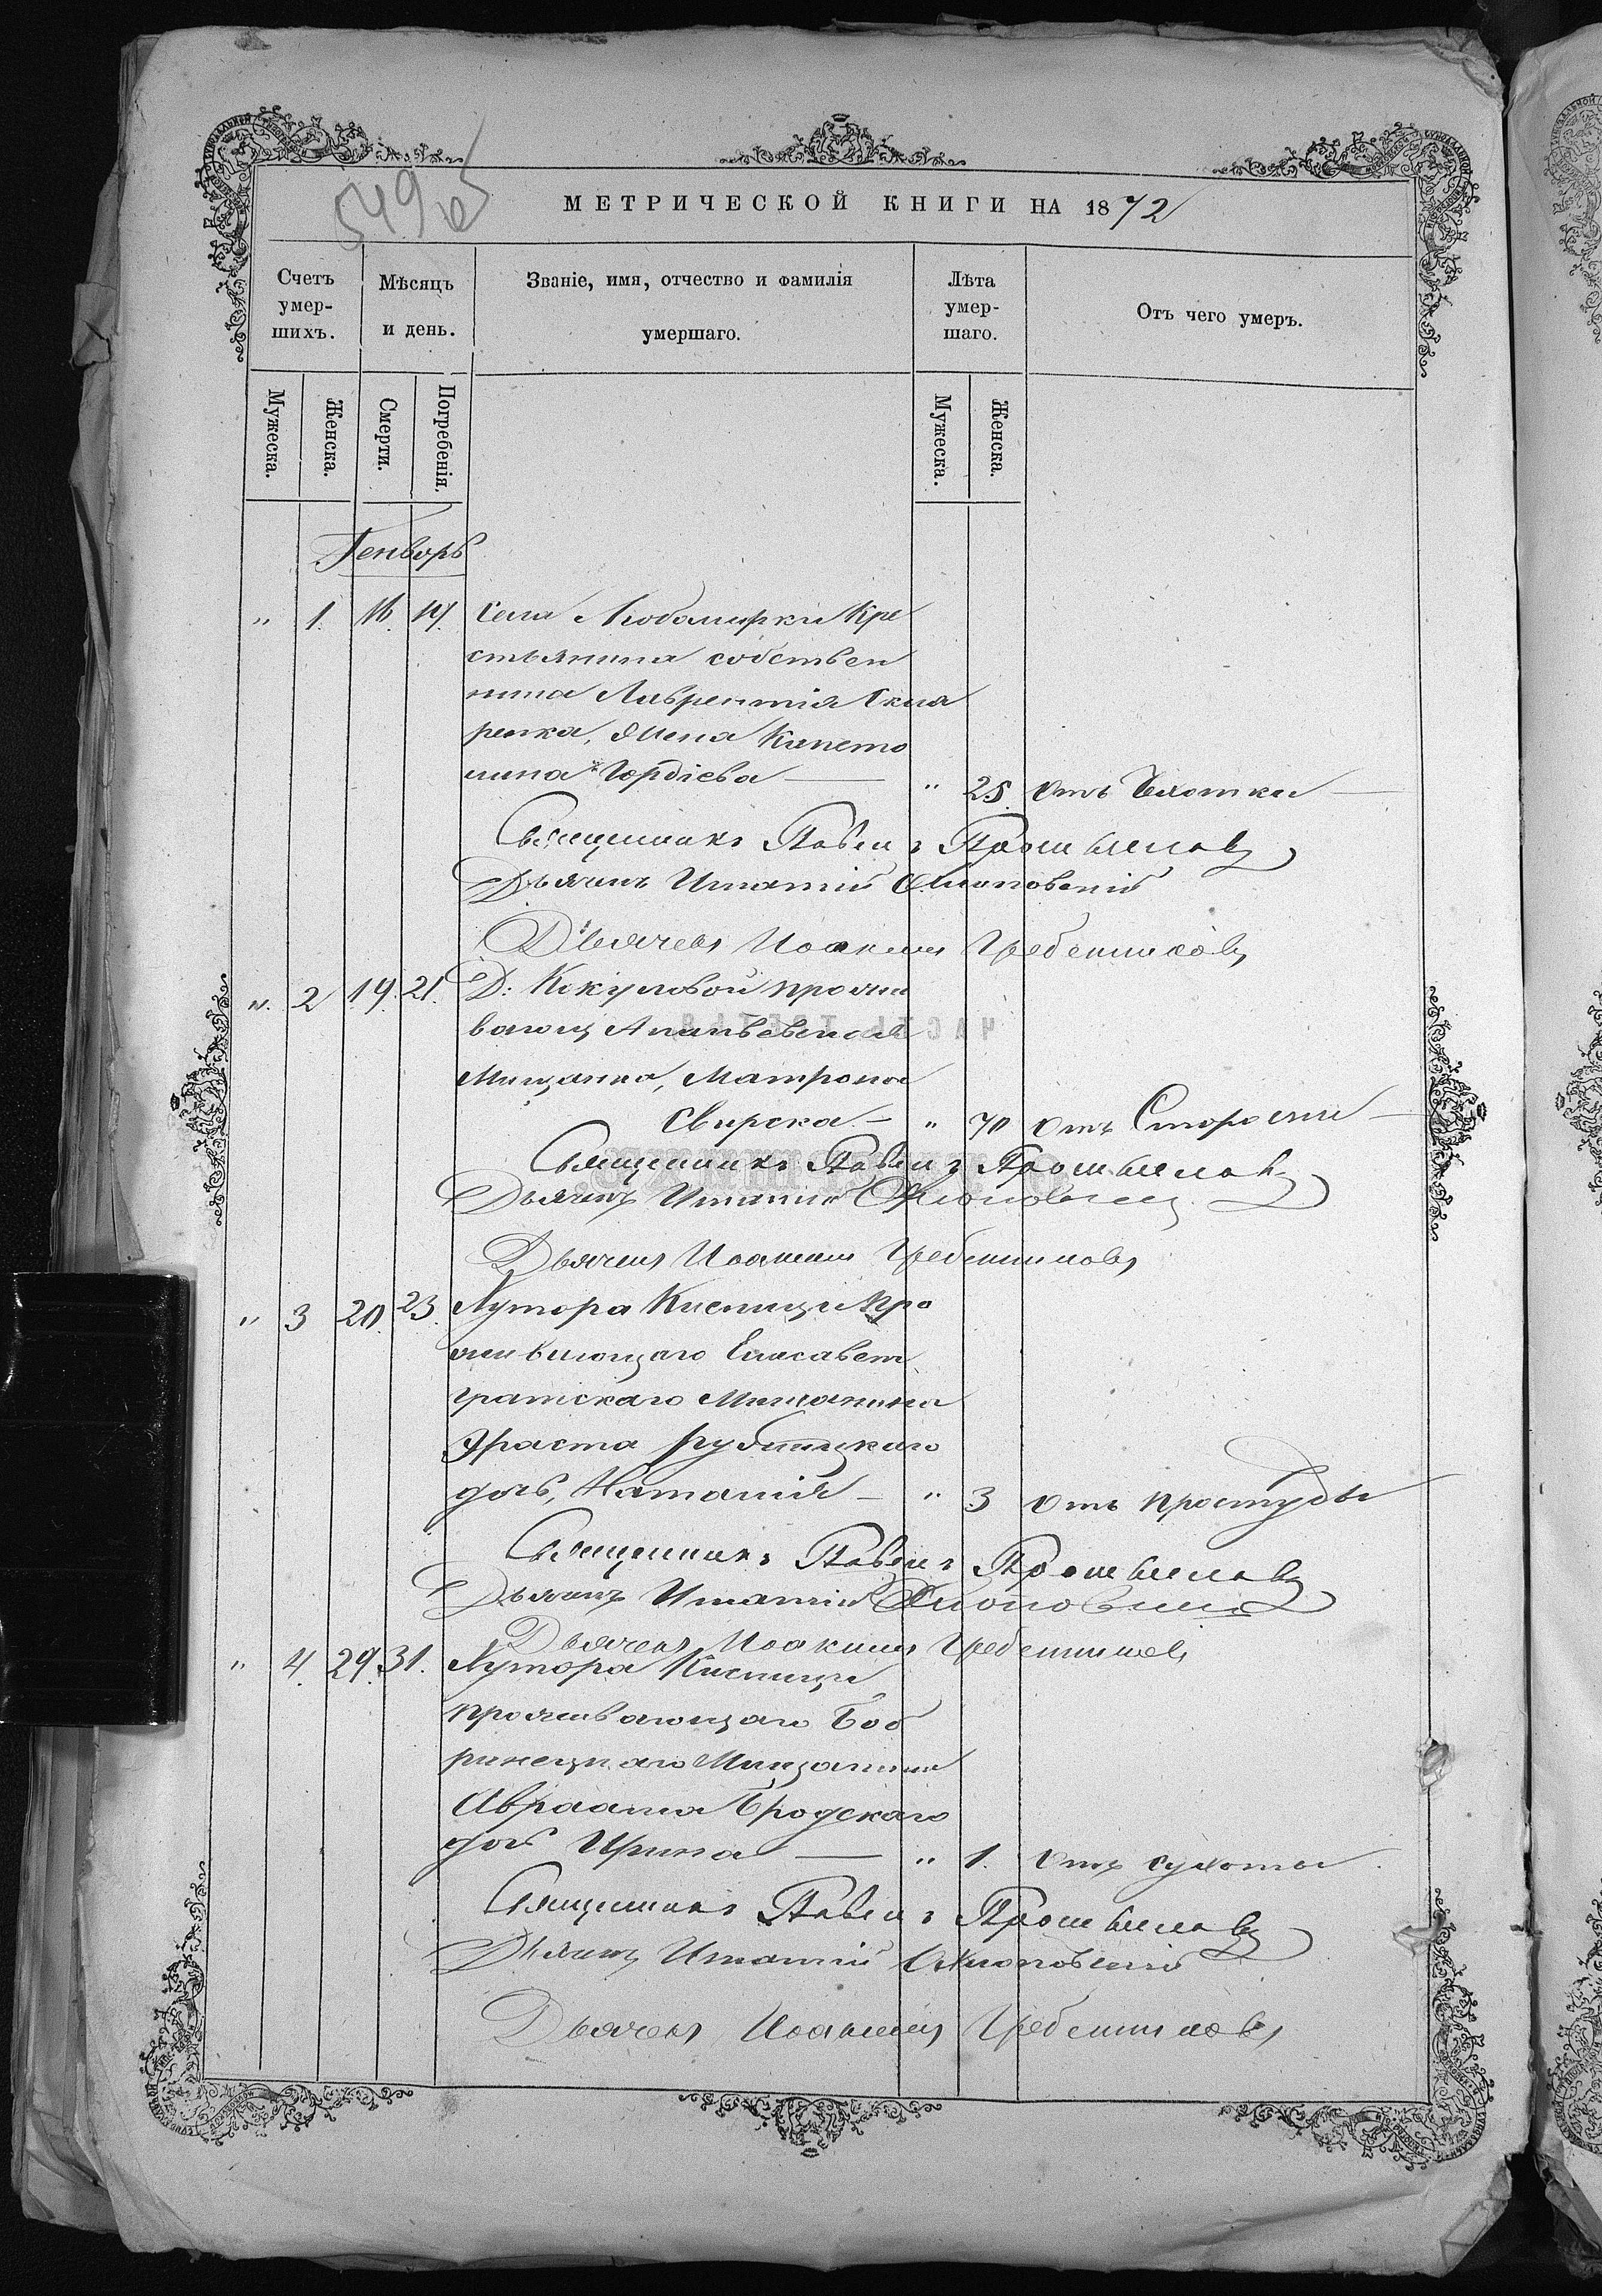 549
МЕТРИЧЕСКОЙ КНИГИ НА 1872
Счетъ умер-шихъ.
Мѣсяцъ и день.
Званіе, имя, отчество и фамилія умершаго.
Лѣта умер-шаго.
Отъ чего умеръ.
Мужеска. Женска. Смерти. Погребенія. Мужеска. Женска.
Генворь
" 1. 16. 19. Села Любомирки Кре
стьянина собствен
ника Лаврентія Скля
ренка, жена Капето
лина Гордіева — " 25. Отъ Чахотки —
Священникъ Павелъ
Дьячекъ Игнатій
Дьячекъ Иоакимъ Гребенниковъ
". 2 19. 21. Д: прожи
вающ Ананьевская
Мищанка, Матрона
Свирска — " 70 Отъ Старости —
Священникъ Павелъ
Дьячекъ Игнатій
Дьячекъ Иоакимъ Гребенниковъ
" 3 20. 23. Хутора про
живающаго Елисавет
гратскаго Мищанина
Эраста
дочь, Наталія — " 3 Отъ простуды
Священникъ Павелъ
Дьячекъ Игнатій
Дьячекъ Иоакимъ Гребенниковъ
" 4. 29. 31. Хутора
проживающаго Боб
ринецкаго Мищанина
Авраама Бродскаго
дочь Ирина — " 1. Отъ сухоты.
Священникъ Павелъ
Дьячекъ Игнатій
Дьячекъ Иоакимъ Гребенниковъ